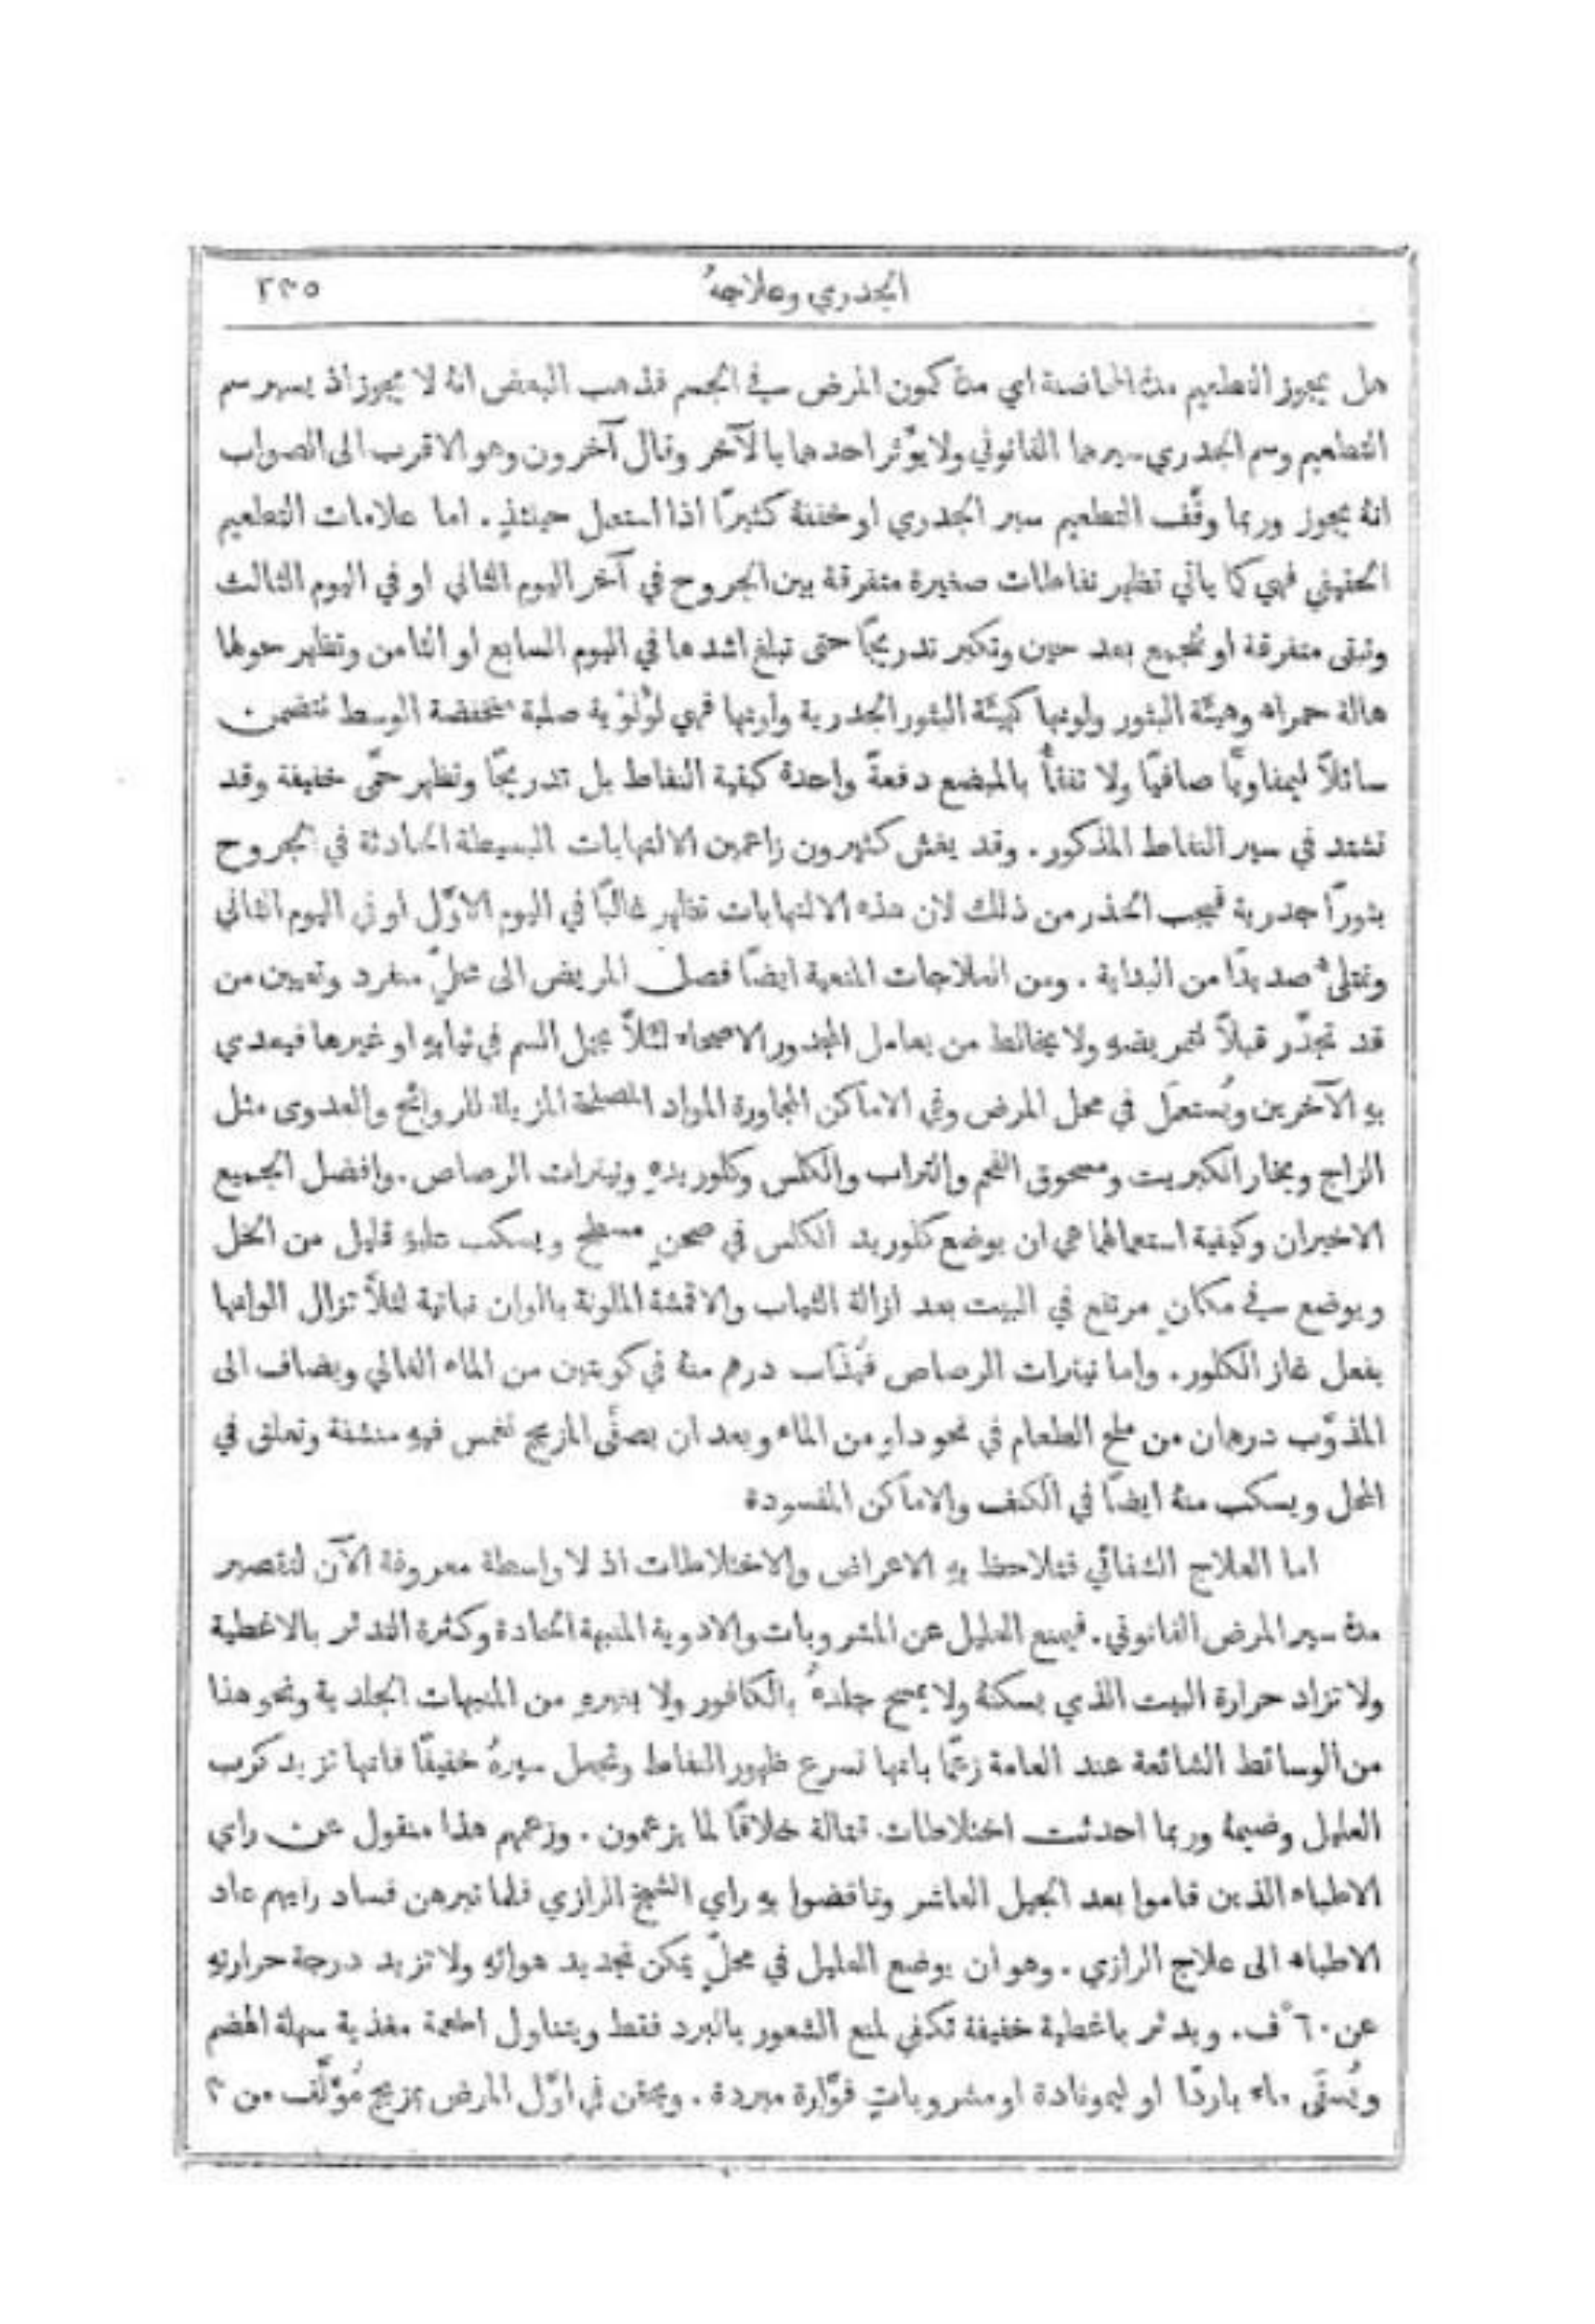 الجدري وعلاجهُ ٢٣٥
هل يجوز التطعيم مدة الحاضنة اي مدة كمون المرض في الجسم فذهب البعض انهُ لا يجوز اذ يسير سم
التطعيم وسم الجدري سيرهما القانوني ولا يوَّثر احدهما بالآخر وقال آخرون وهو الاقرب الى الصواب
انهُ يجوز وربما وقَّف التطعيم سير الجدري او خففهُ كثيرًا اذا استعمل حينئذٍ . اما علامات التطعيم
الحقيقي فهي كما ياتي تظهر نفاطات صغيرة متفرقة بين الجروح في آخر اليوم الثاني او في اليوم الثالث
وتبقى متفرقة او تُجمع بعد حين وتكبر تدريجًا حتى تبلغ اشدها في اليوم السابع او الثامن وتظهر حولها
هالة حمراء وهيئة البثور ولونها كهيئة البثور الجدرية ولونها فهي لوْلوْية صلبة منخفضة الوسط تتضمن
سائلًا ليمفاويًّا صافيًا ولا تفقأُ بالمبضع دفعةً واحدة كبقية النفاط بل تدريجًا وتظهر حمَّى خفيفة وقد
تشتد في سير النفاط المذكور . وقد يغش كثيرون زاعمين الالتهابات البسيطة الحادثة في الجروح
بثورًا جدرية فيجب الحذر من ذلك لان هذه الالتهابات تظهر غالبًا في اليوم الاوَّل او في اليوم الثاني
وتمتلىء صديدًا من البداية . ومن العلاجات المنعية ايضًا فصل المريض الى محلٍّ منفرد وتعيين من
قد تجدَّر قبلًا لتمريضهِ ولا يخالط من يعامل المجدور الاصحاء لئلَّا يحمل السم في ثيابهِ او غيرها فيعدي
بهِ الآخرين ويُستعمَل في محل المرض وفي الاماكن المجاورة المواد المصلحة المزيلة للروائح والعدوى مثل
الزاج وبخار الكبريت ومسحوق الفحم والتراب والكلس وكلوريدهِ ونيترات الرصاص . وافضل الجميع
الاخيران وكيفية استعمالهما هي ان يوضع كلوريد الكلس في صحنٍ مسطح ويسكب عليهِ قليل من الخل
ويوضع في مكانٍ مرتفع في البيت بعد ازالة الثياب والاقمشة الملونة بالوان نباتية لئلَّا تزال الوانها
بفعل غاز الكلور . واما نيترات الرصاص فيُذَاب درهم منهُ في كوبتين من الماء الغالي ويضاف الى
المذوَّب درهمان من ملح الطعام في نحو دلوٍ من الماء وبعد ان يصفَّى المزيج تغمس فيهِ منشفة وتعلق في
المحل ويسكب منهُ ايضًا في الكنف والاماكن المفسودة
اما العلاج الشفائي فتلاحظ بهِ الاعراض والاختلاطات اذ لا واسطة معروفة الآن لتقصير
مدة سير المرض القانوني . فيمنع العليل عن المشروبات والادوية المنبهة الحادة وكثرة التدثر بالاغطية
ولا تزاد حرارة البيت الذي يسكنهُ ولا يمسح جلدهُ بالكافور ولا بغيرهِ من المنبهات الجلدية ونحو هذا
من الوسائط الشائعة عند العامة زعمًا بانها تسرع ظهور النفاط وتجعل سيرهُ خفيفًا فانها تزيد كرب
العليل وضيمهُ وربما احدثت اختلاطات قتالة خلافًا لما يزعمون . وزعمهم هذا منقول عن راي
الاطباء الذين قاموا بعد الجيل العاشر وناقضوا بهِ راي الشيخ الرازي فلما تبرهن فساد رايهم عاد
الاطباء الى علاج الرازي . وهو ان يوضع العليل في محلٍّ يمكن تجديد هوائهِ ولا تزيد درجة حرارتهِ
عن ٦٠ْ ف . ويدثر باغطية خفيفة تكفي لمنع الشعور بالبرد فقط ويتناول اطعمة مغذية سهلة الهضم
ويُسقَى ماء باردًا او ليمونادة او مشروباتٍ فوَّارة مبردة . ويحقن في اوَّل المرض بمزيج مُوَّلَّف من ٣